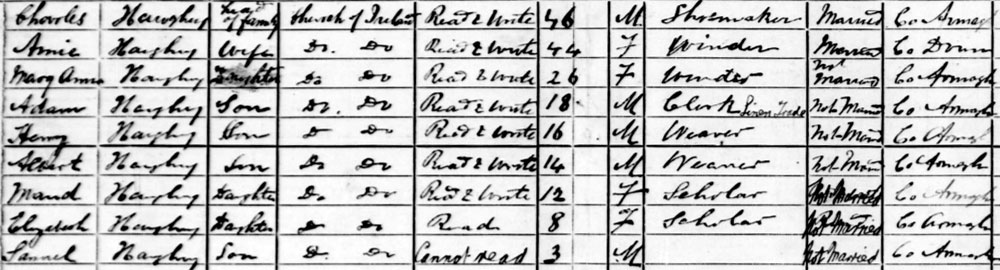 Charles Haughey head of family Church of Ireland Read & Write 46 M Shoemaker Married Co Armagh
Annie Haughey Wife Do. Do Read & Write 44 F Winder Married Co Down
Mary Anna Haughey Daughter Do Do Read & Write 26 F Winder Not Married Co Armagh
Adam Haughey Son Do. Do Read & Write 18 M Clerk Linen Trade Not Married Co Armagh
Henry Haughey Son D Do Read & Write 16 M Weaver Not Married Co Armagh
Albert Haughey Son Do Do Read & Write 14 M Weaver Not Married Co Armagh
Maud Haughey Daughter Do Do Read & Write 12 F Scholar Not Married Co Armagh
Elizabeth Haughey Daughter Do Do Read 8 F Scholar Not Married Co Armagh
Samuel Haughey Son Do. Do Cannot read 3 M Not Married Co Armagh